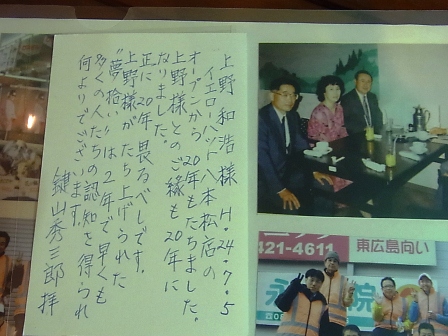 上野和浩様 H.24.7.5
イエローハット八本松店の
オープンから20年もたちました。
上野様とのご縁も20年に
なりました。
正に20年畏るべしです。
上野様がたち上げられた
"夢拾い"は2年で早くも
多くの人たちの認知を得られ
何よりでございます。
鍵山秀三郎 拝
421-4611
東広島向い
院